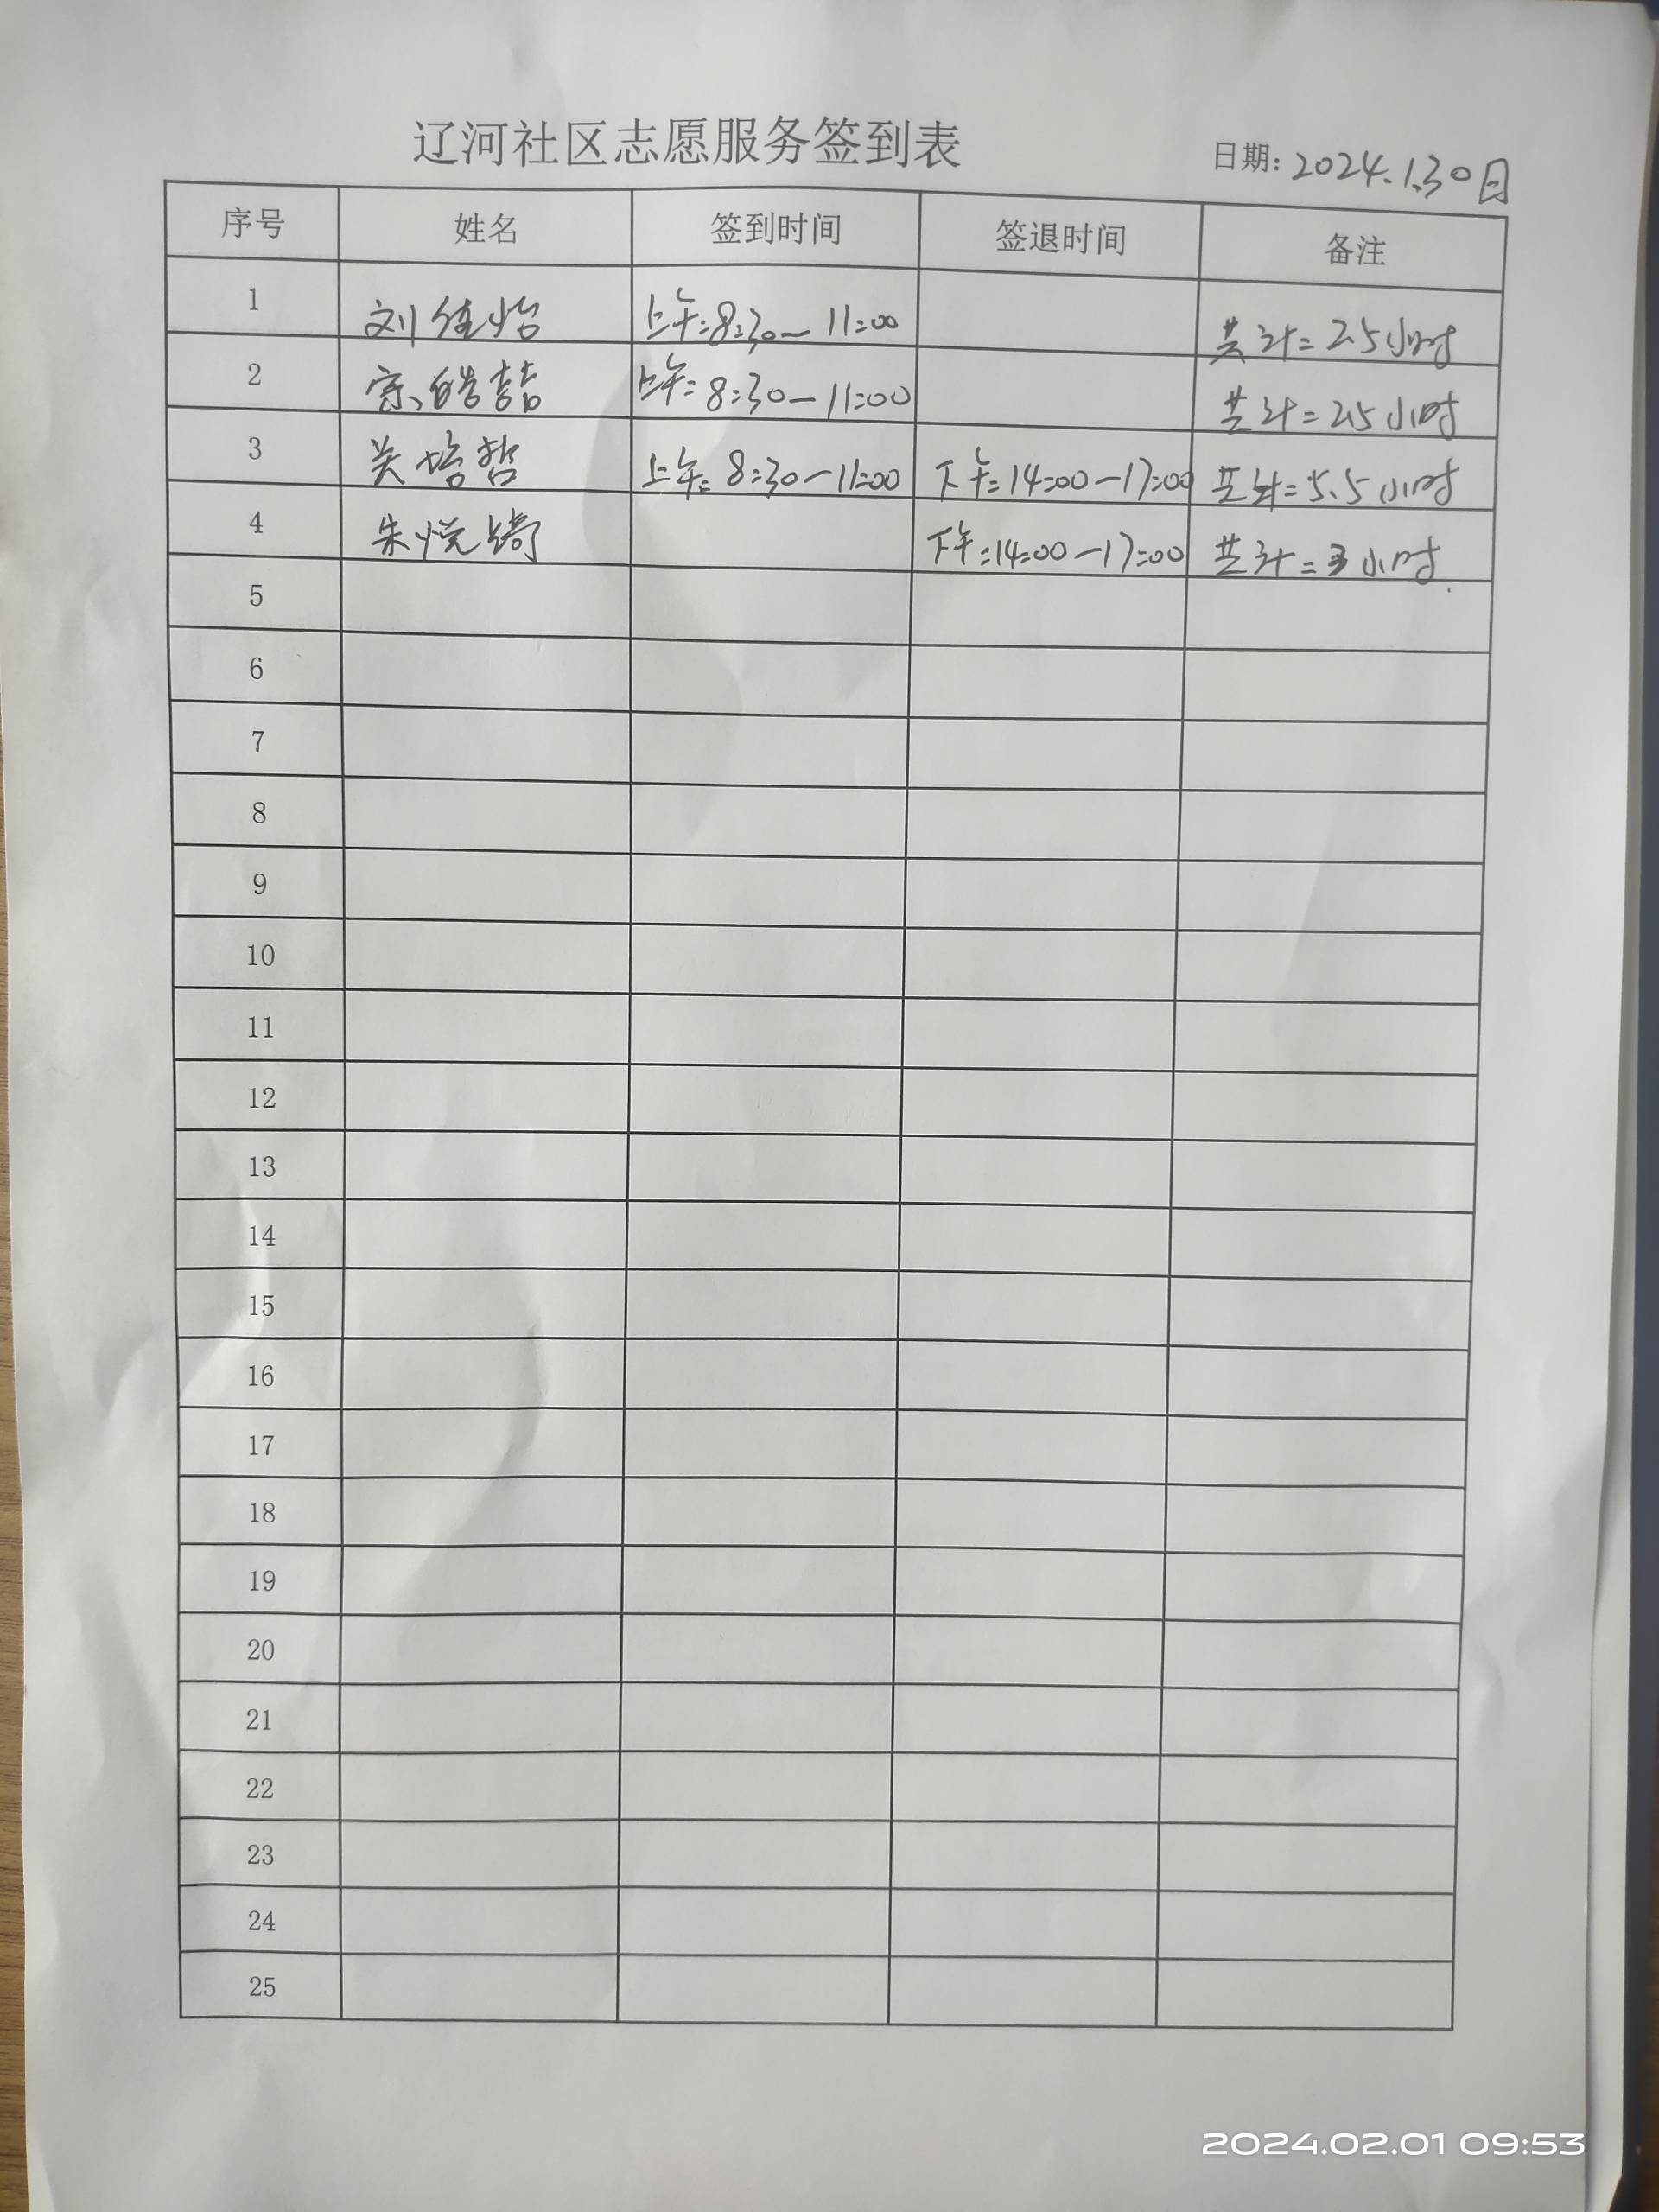 辽河社区志愿服务签到表 日期: 2024.1.30日
序号 姓名 签到时间 签退时间 备注
1 刘佳怡 上午:8:30—11:00 共计=2.5小时
2 宗皓喆 上午:8:30—11:00 共计=2.5小时
3 关培哲 上午:8:30—11:00 下午:14:00—17:00 共计=5.5小时
4 朱悦锜 下午:14:00—17:00 共计=3小时.
5
6
7
8
9
10
11
12
13
14
15
16
17
18
19
20
21
22
23
24
25
2024.02.01 09:53